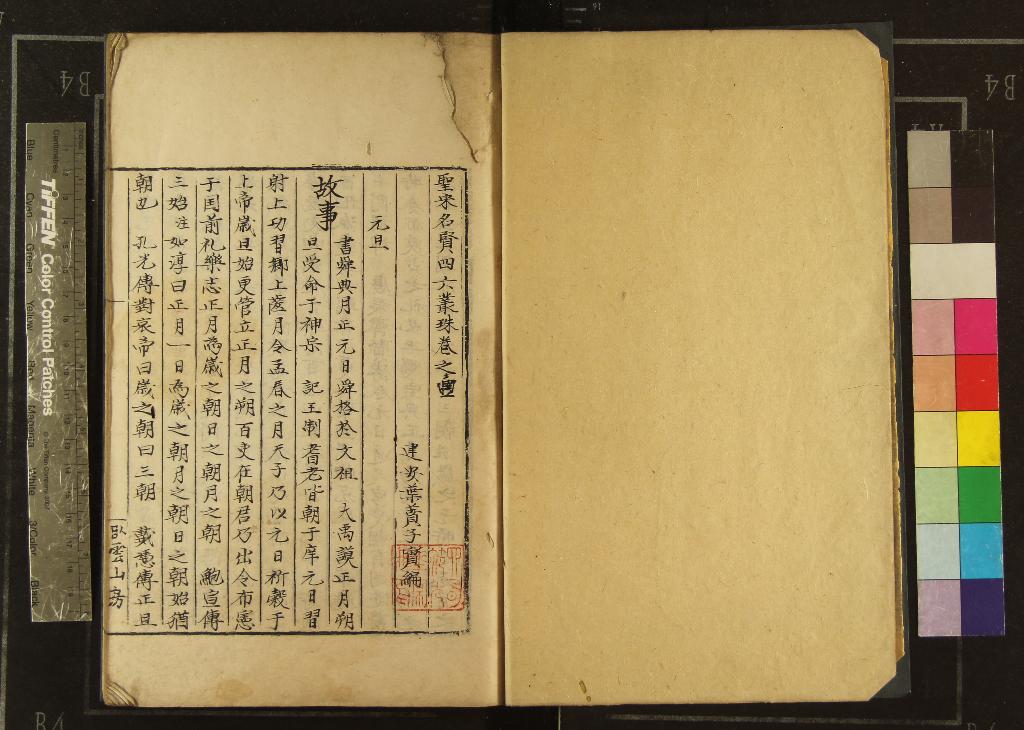 聖宋名賢四六叢珠卷之
建安葉蕡子實編
元旦
故事
書舜典月正元日舜格於文祖 大禹謨正月朔
旦受命于神宗 記王制耆老皆朝于庠元日習
射上功習鄉上齒月令孟春之月天子乃以元日祈穀于
上帝歲旦始更管立正月之朔百吏在朝君乃出令布憲
于国前礼樂志正月為歲之朝日之朝月之朝 鮑宣傳
三始注如淳曰正月一日為歲之朝月之朝日之朝始猶
朝也 孔光傳對哀帝曰歲之朝曰三朝 戴憑傳正旦
臥雲山房
B4
B4
B4
TIFFEN Color Control Patches
Centimetres
Blue
Cyan
Green
Yellow
Red
Magenta
White
3/Color
Black